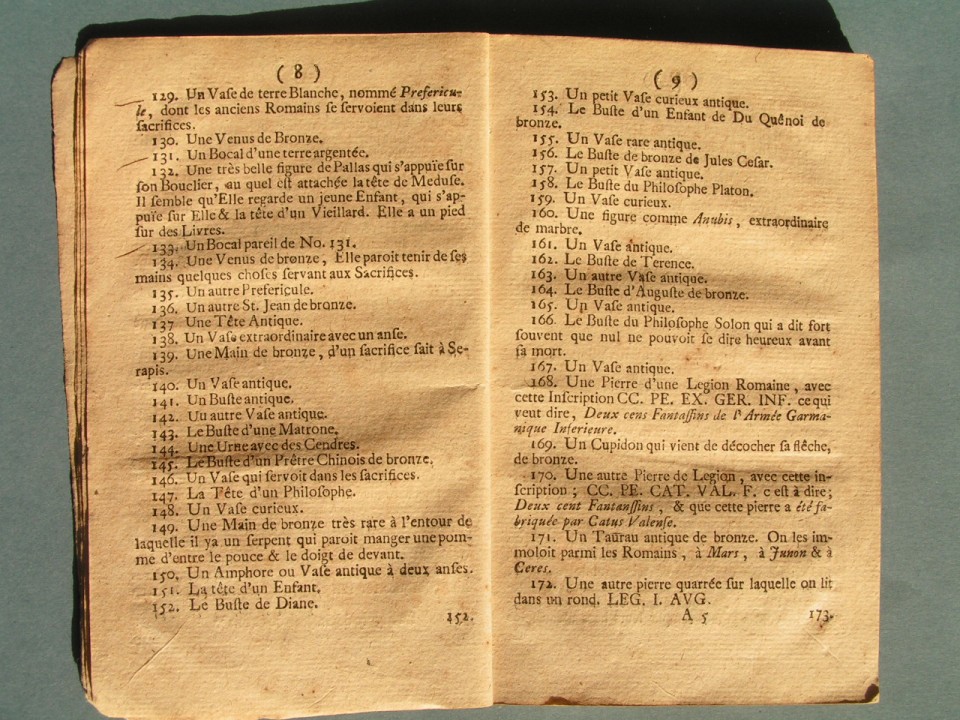 ( 8 )
129. Un Vaſe de terre Blanche, nommé Prefericu-
le, dont les anciens Romains ſe ſervoient dans leurs
ſacrifices.
130. Une Venus de Bronze.
131. Un Bocal d'une terre argentée.
132. Une très belle figure de Pallas qui s'appuïe ſur
ſon Bouclier, au quel eſt attachée la tête de Meduſe.
Il ſemble qu'Elle regarde un jeune Enfant, qui s'ap-
puïe ſur Elle & la tête d'un Vieillard. Elle a un pied
ſur des Livres.
133. Un Bocal pareil de No. 131.
134. Une Venus de bronze, Elle paroit tenir de ſes
mains quelques choſes ſervant aux Sacrifices.
135. Un autre Prefericule.
136. Un autre St. Jean de bronze.
137 Une Tête Antique.
138. Un Vaſe extraordinaire avec un anſe.
139. Une Main de bronze, d'un ſacrifice fait à Se-
rapis.
140. Un Vaſe antique.
141. Un Buſte antique.
142. Uu autre Vaſe antique.
143. Le Buſte d'une Matrone.
144. Une Urne avec des Cendres.
145. Le Buſte d'un Prêtre Chinois de bronze.
146. Un Vaſe qui ſervoit dans les ſacrifices.
147. La Tête d'un Philoſophe.
148. Un Vaſe curieux.
149. Une Main de bronze très rare à l'entour de
laquelle il ya un ſerpent qui paroit manger une pom-
me d'entre le pouce & le doigt de devant.
150. Un Amphore ou Vaſe antique à deux anſes.
151. La tête d'un Enfant.
152. Le Buſte de Diane.
152.
( 9 )
153. Un petit Vaſe curieux antique.
154. Le Buſte d'un Enfant de Du Quênoi de
bronze.
155. Un Vaſe rare antique.
156. Le Buſte de bronze de Jules Ceſar.
157. Un petit Vaſe antique.
158. Le Buſte du Philoſophe Platon.
159. Un Vaſe curieux.
160. Une figure comme Anubis, extraordinaire
de marbre.
161. Un Vaſe antique.
162. Le Buſte de Terence.
163. Un autre Vaſe antique.
164. Le Buſte d'Auguſte de bronze.
165. Un Vaſe antique.
166. Le Buſte du Philoſophe Solon qui a dit fort
ſouvent que nul ne pouvoit ſe dire heureux avant
ſa mort.
167. Un Vaſe antique.
168. Une Pierre d'une Legion Romaine, avec
cette Inſcription CC. PE. EX. GER. INF. ce qui
veut dire, Deux cens Fantaſſins de l'Armée Garma-
nique Inferieure.
169. Un Cupidon qui vient de décocher ſa flêche,
de bronze.
170. Une autre Pierre de Legion, avec cette in-
ſcription; CC. PE. CAT. VAL. F. c eſt à dire;
Deux cent Fantanſſins, & que cette pierre a été fa-
briquée par Catus Valenſe.
171. Un Taurau antique de bronze. On les im-
moloit parmi les Romains, à Mars, à Junon & à
Ceres.
172. Une autre pierre quarrée ſur laquelle on lit
dans un rond. LEG. I. AVG.
A 5 173.